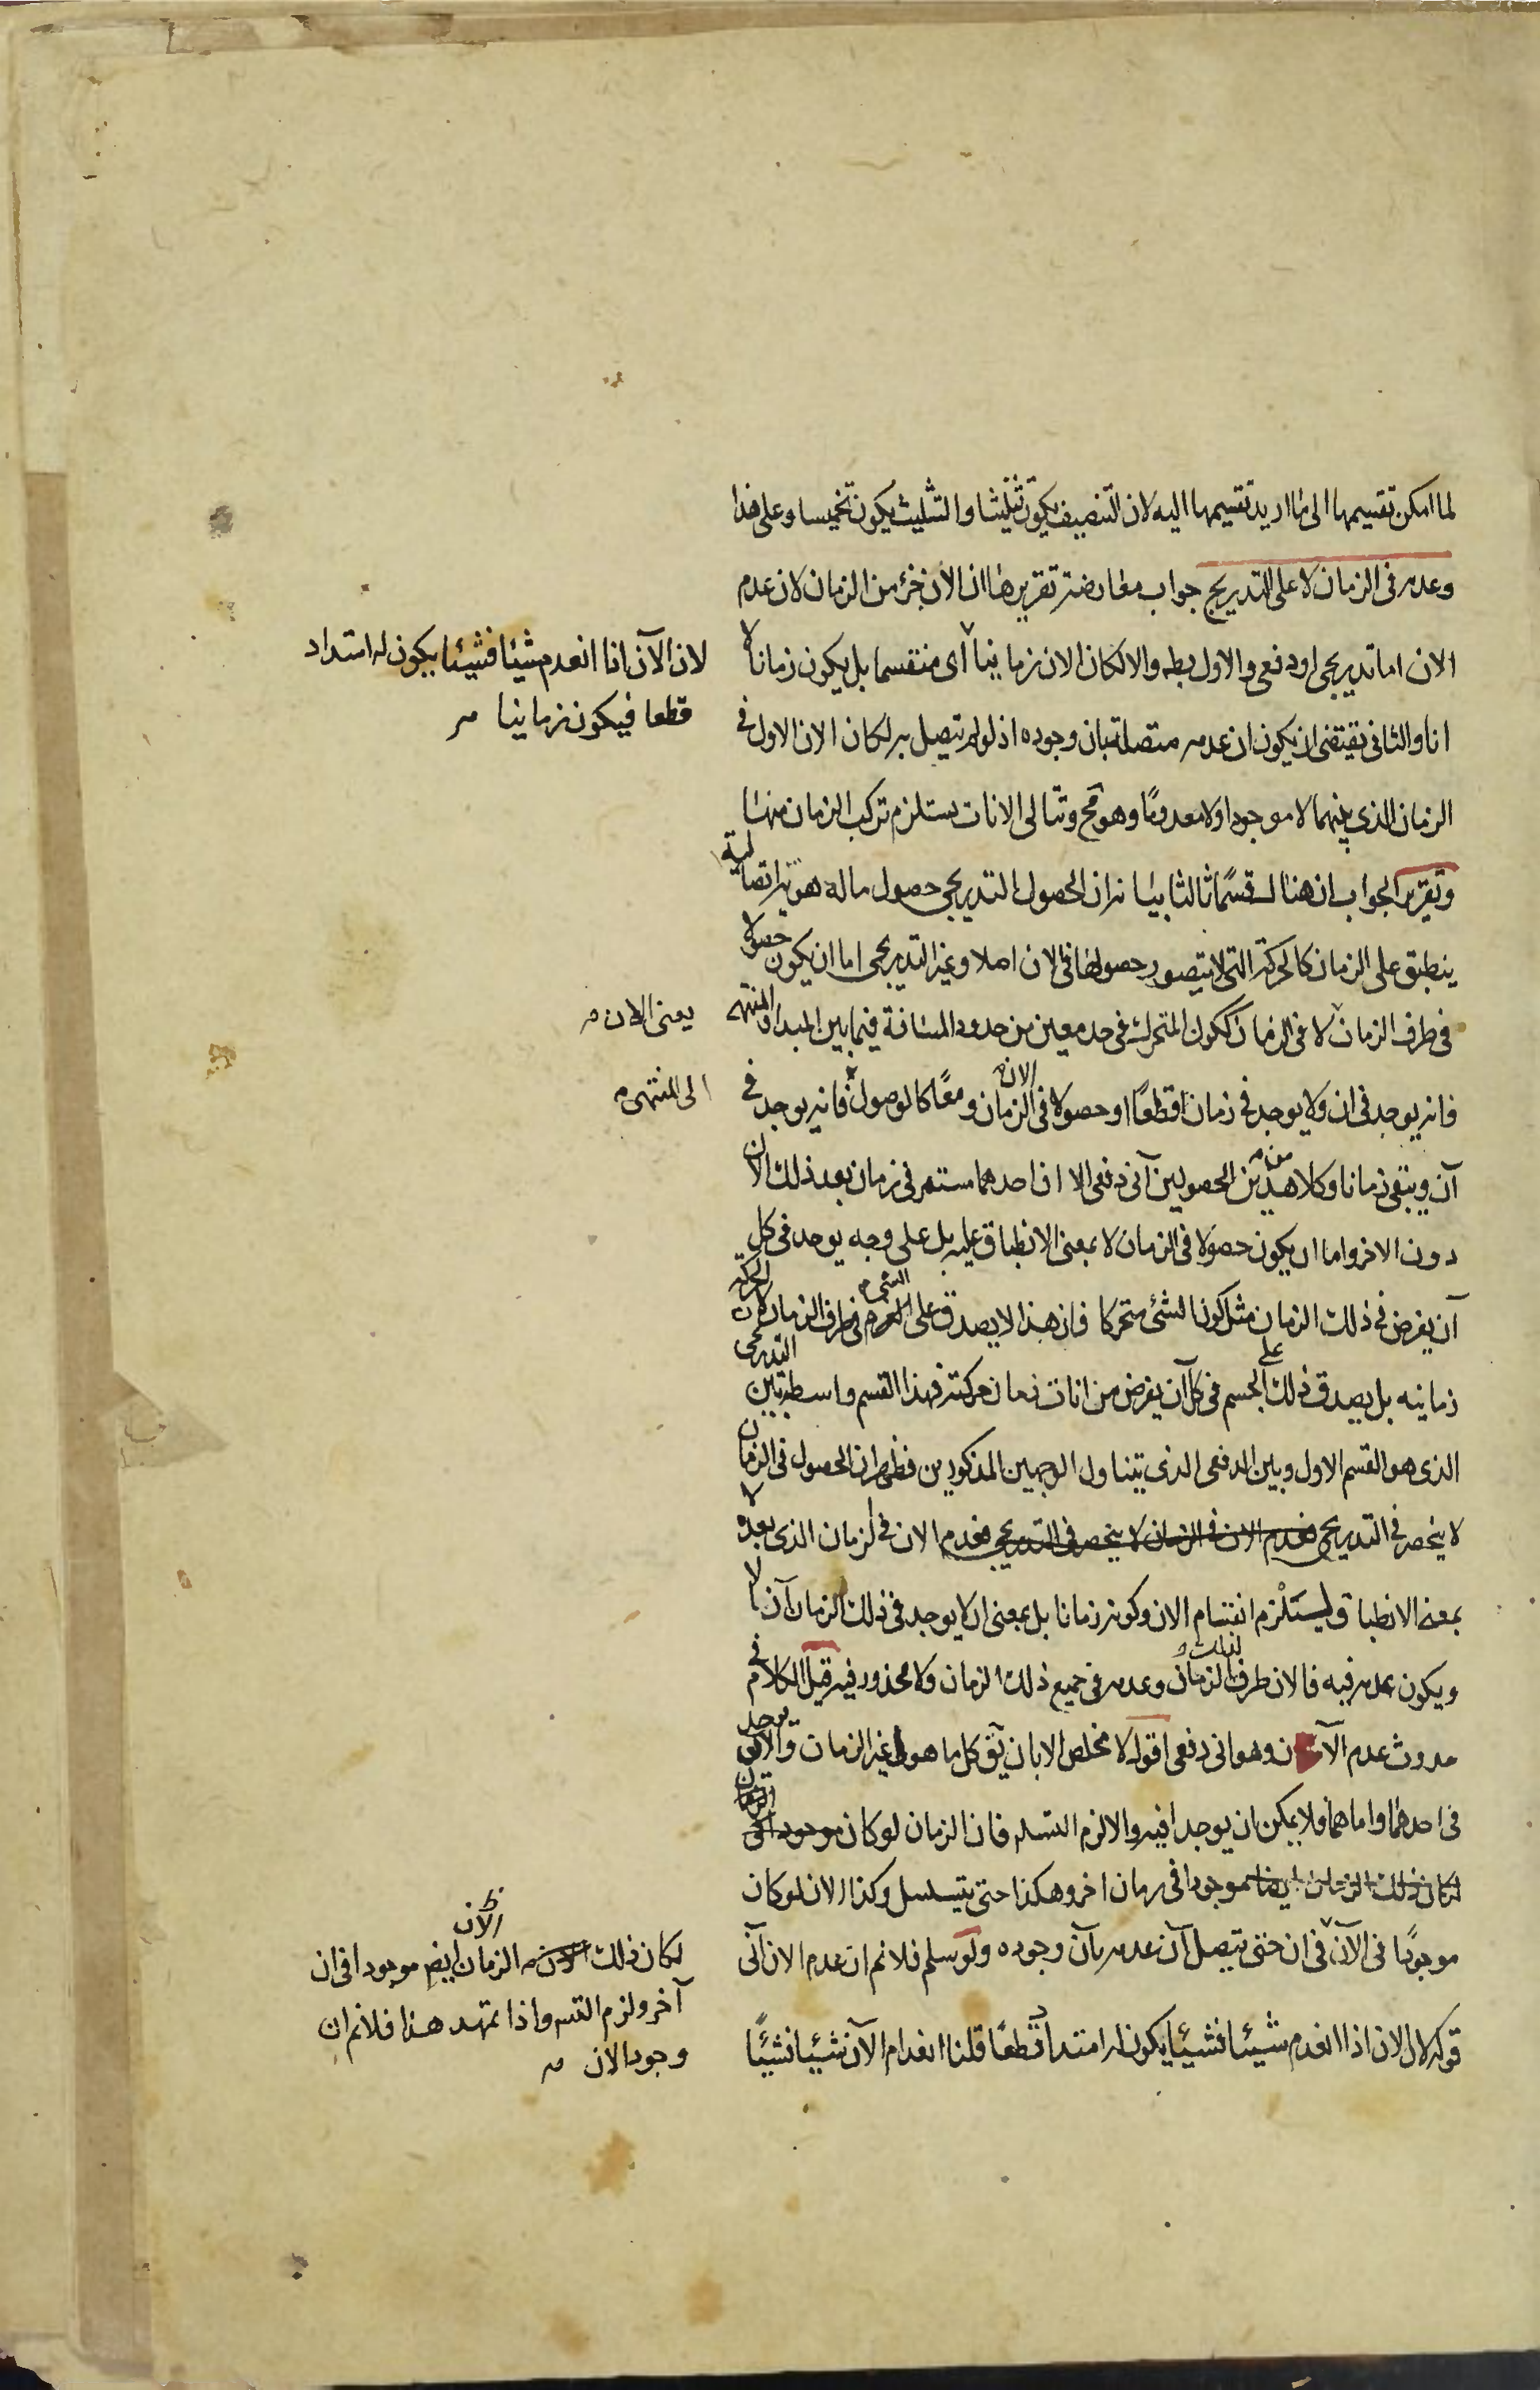 لما امكن تقسيمها الى ما اريد تقسيمها اليه لان التنصيف يكون تثليثا والتثليث يكون تخميسا وعلى هذا
وعدمه فى الزمان لا على التدريج جواب معارضة تقريرها ان الآن جزء من الزمان لان عدم
الان اما تدريجى او دفعى والاول بط والا لكان الان زمانيا اى منقسما بل يكون زمانا لا
لان الآن اذا انعدم شيئا فشيئا يكون له امتداد
قطعا فيكون زمانيا مر
انا والثانى يقتضى ان يكون ان عدمه متصلة بان وجوده اذ لو لم يتصل به لكان الان الاول فى
الزمان الذى بينهما لا موجودا ولا معدومًا وهو مح وتتالى الانات يستلزم تركب الزمان منها
وتقرير الجواب ان هنالك قسمًا ثالثا بيانه ان الحصول التدريجى حصول ماله هوية اتصالية
ينطبق على الزمان كالحركة التى لا يتصور حصولها فى الان اصلا وغير التدريجى اما ان يكون حصولا
فى طرف الزمان لا فى الزمان ككون المتحرك فى حد معين من حدود المسافة فيما بين المبدا والمنتهى
يعنى الان مر
فانه يوجد فى ان ولا يوجد فى زمان قطعًا او حصولا فى الزمان الان ومعًا كالوصول فانه يوجد فى
الى المنتهى مر
آن ويبقى زمانا وكلا هذين من الحصولين آنى دفعى الا ان احدهما مستمر فى زمان بعد ذلك الان
دون الاخر واما ان يكون حصولا فى الزمان لا بمعنى الانطباق عليه بل على وجه يوجد فى كل
آن يفرض فى ذلك الزمان مثل كون الشئ متحركا فان هذا لا يصدق على الشئ فى طرف الزمان لان الحركة
زمانية بل يصدق ذلك على الجسم فى كل آن يفرض من انات زمان حركته فهذا القسم واسطة بين التدريجى
الذى هو القسم الاول وبين الدفعى الذى يتناول الوجهين المذكورين فظهر ان الحصول فى الزمان
لا ينحصر فى التدريجى فعدم الان فى الزمان لا ينحصر فى التدريجى فعدم الان فى الزمان الذى بعده لا
بمعنى الانطباق ليستلزم انقسام الان وكونه زمانا بل بمعنى ان لا يوجد فى ذلك الزمان آن لا
ويكون عدمه فيه فالان طرف لذلك الزمان وعدمه فى جميع ذلك الزمان ولا محذور فيه قيل الكلام فى
حدوث عدم الآن وهو انى دفعى اقول لا مخلص الا بان يق كل ما هو غير الزمان والان يوجد
فى احدهما واما هما فلا يمكن ان يوجدا فيه والا لزم التسلسل فان الزمان لو كان موجودا فى
لكان ذلك الزمان ايضا موجودا فى زمان اخر وهكذا حتى يتسلسل وكذا الان لو كان
موجودًا فى الآن فى ان حتى يتصل آن عدمه بآن وجوده ولو سلم فلانم ان عدم الان آنى
لكان ذلك الآن الزمان ايض موجودا فى ان
آخر ولزم التس واذا تمهد هذا فلانم ان
وجود الان مر
قوله لان الان اذا انعدم شيئا فشيئا يكون له امتداد قطعًا قلنا انعدام الآن شيئا فشيئًا